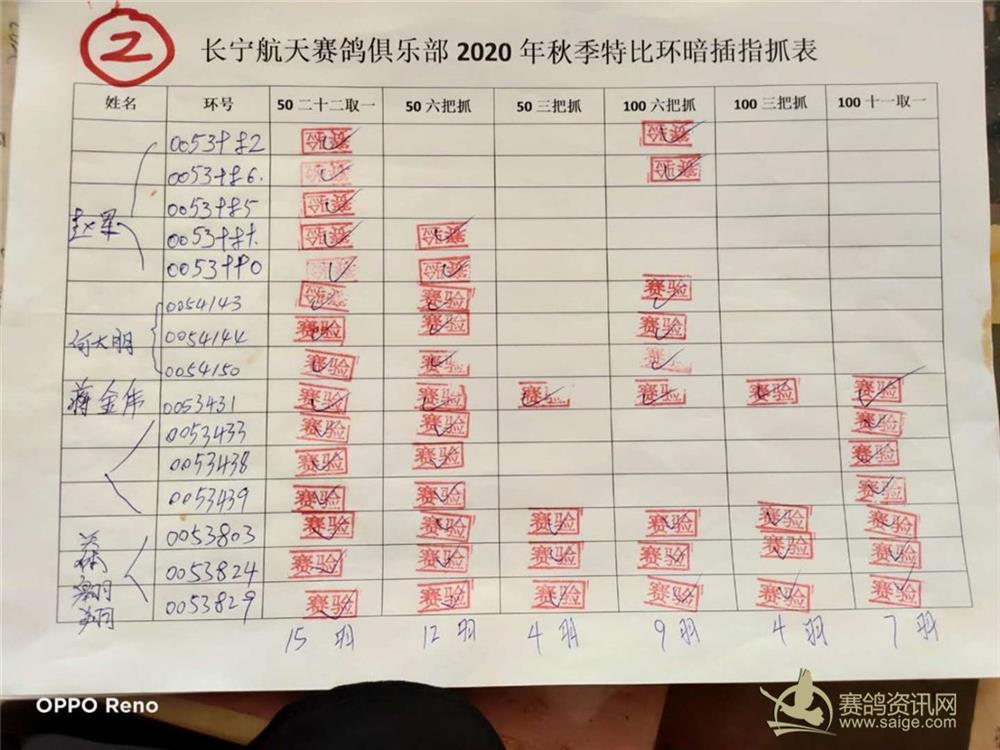 2
长宁航天赛鸽俱乐部 2020 年秋季特比环暗插指抓表
姓名 环号 50 二十二取一 50 六把抓 50 三把抓 100 六把抓 100 三把抓 100 十一取一
赛验 赛验
赛验 赛验
赛验
赛验 赛验
赛验 赛验
0054143 赛验 赛验 赛验
何大明 0054144 赛验 赛验 赛验
0054150 赛验 赛验 赛验
蒋金伟 0053431 赛验 赛验 赛验 赛验 赛验 赛验
0053433 赛验 赛验 赛验
0053438 赛验 赛验 赛验
0053439 赛验 赛验 赛验
0053803 赛验 赛验 赛验 赛验 赛验 赛验
0053824 赛验 赛验 赛验 赛验 赛验 赛验
0053829 赛验 赛验 赛验 赛验 赛验 赛验
15 羽 12 羽 4 羽 9 羽 4 羽 7 羽
OPPO Reno
赛鸽资讯网
www.saige.com